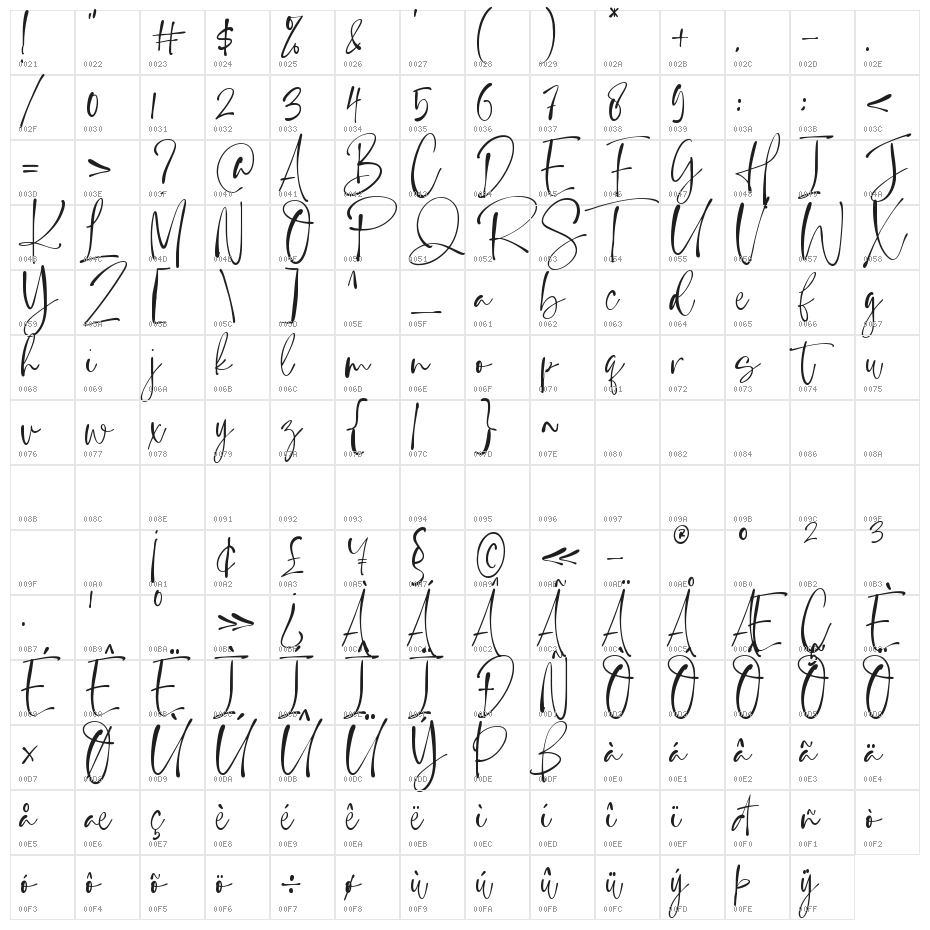 ! " # $ % & ' ( ) * + , - .
0021 0022 0023 0024 0025 0026 0027 0028 0029 002A 002B 002C 002D 002E
/ 0 1 2 3 4 5 6 7 8 9 : ; <
002F 0030 0031 0032 0033 0034 0035 0036 0037 0038 0039 003A 003B 003C
= > ? @ A B C D E F G H I J
003D 003E 003F 0040 0041 0042 0043 0044 0045 0046 0047 0048 0049 004A
K L M N O P Q R S T U V W X
004B 004C 004D 004E 004F 0050 0051 0052 0053 0054 0055 0056 0057 0058
Y Z [ \ ] ^ _ a b c d e f g
0059 005A 005B 005C 005D 005E 005F 0061 0062 0063 0064 0065 0066 0067
h i j k l m n o p q r s t u
0068 0069 006A 006B 006C 006D 006E 006F 0070 0071 0072 0073 0074 0075
v w x y z { | } ~
0076 0077 0078 0079 007A 007B 007C 007D 007E 0080 0082 0084 0086 008A
008B 008C 008E 0091 0092 0093 0094 0095 0096 0097 009A 009B 009C 009E
¡ ¢ £ ¥ § © « - ® º 2 3
009F 00A0 00A1 00A2 00A3 00A5 00A7 00A9 00AB 00AD 00AE 00B0 00B2 00B3
· 1 º » ¿ À Á Â Ã Ä Å Æ Ç È
00B7 00B9 00BA 00BB 00BF 00C0 00C1 00C2 00C3 00C4 00C5 00C6 00C7 00C8
É Ê Ë Ì Í Î Ï Ð Ñ Ò Ó Ô Õ Ö
00C9 00CA 00CB 00CC 00CD 00CE 00CF 00D0 00D1 00D2 00D3 00D4 00D5 00D6
× Ø Ù Ú Û Ü Ý Þ ß à á â ã ä
00D7 00D8 00D9 00DA 00DB 00DC 00DD 00DE 00DF 00E0 00E1 00E2 00E3 00E4
å æ ç è é ê ë ì í î ï ð ñ ò
00E5 00E6 00E7 00E8 00E9 00EA 00EB 00EC 00ED 00EE 00EF 00F0 00F1 00F2
ó ô õ ö ÷ ø ù ú û ü ý þ ÿ
00F3 00F4 00F5 00F6 00F7 00F8 00F9 00FA 00FB 00FC 00FD 00FE 00FF